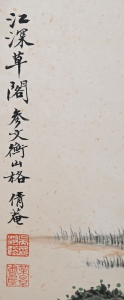 江深草閣
參文衡山格 倩菴